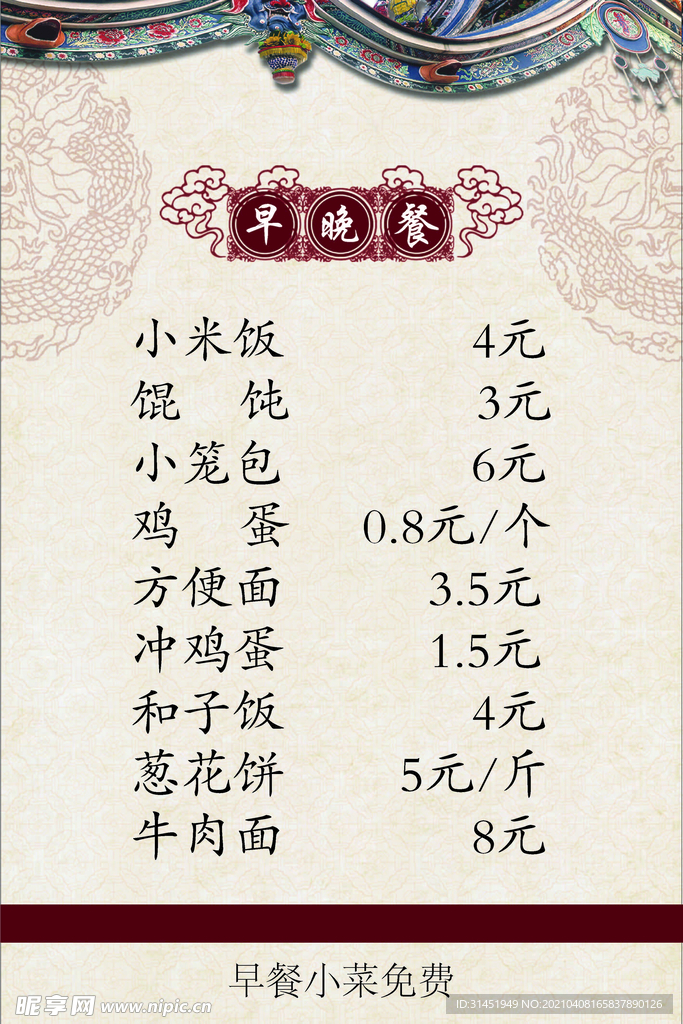 早晚餐
小米饭 4元
馄饨 3元
小笼包 6元
鸡蛋 0.8元/个
方便面 3.5元
冲鸡蛋 1.5元
和子饭 4元
葱花饼 5元/斤
牛肉面 8元
早餐小菜免费
昵享网 www.nipic.cn
ID:31451949 NO:20210408165837890126